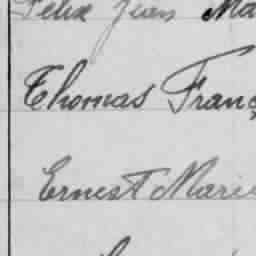 Felix Jean Ma
Thomas Franç
Ernest Marie